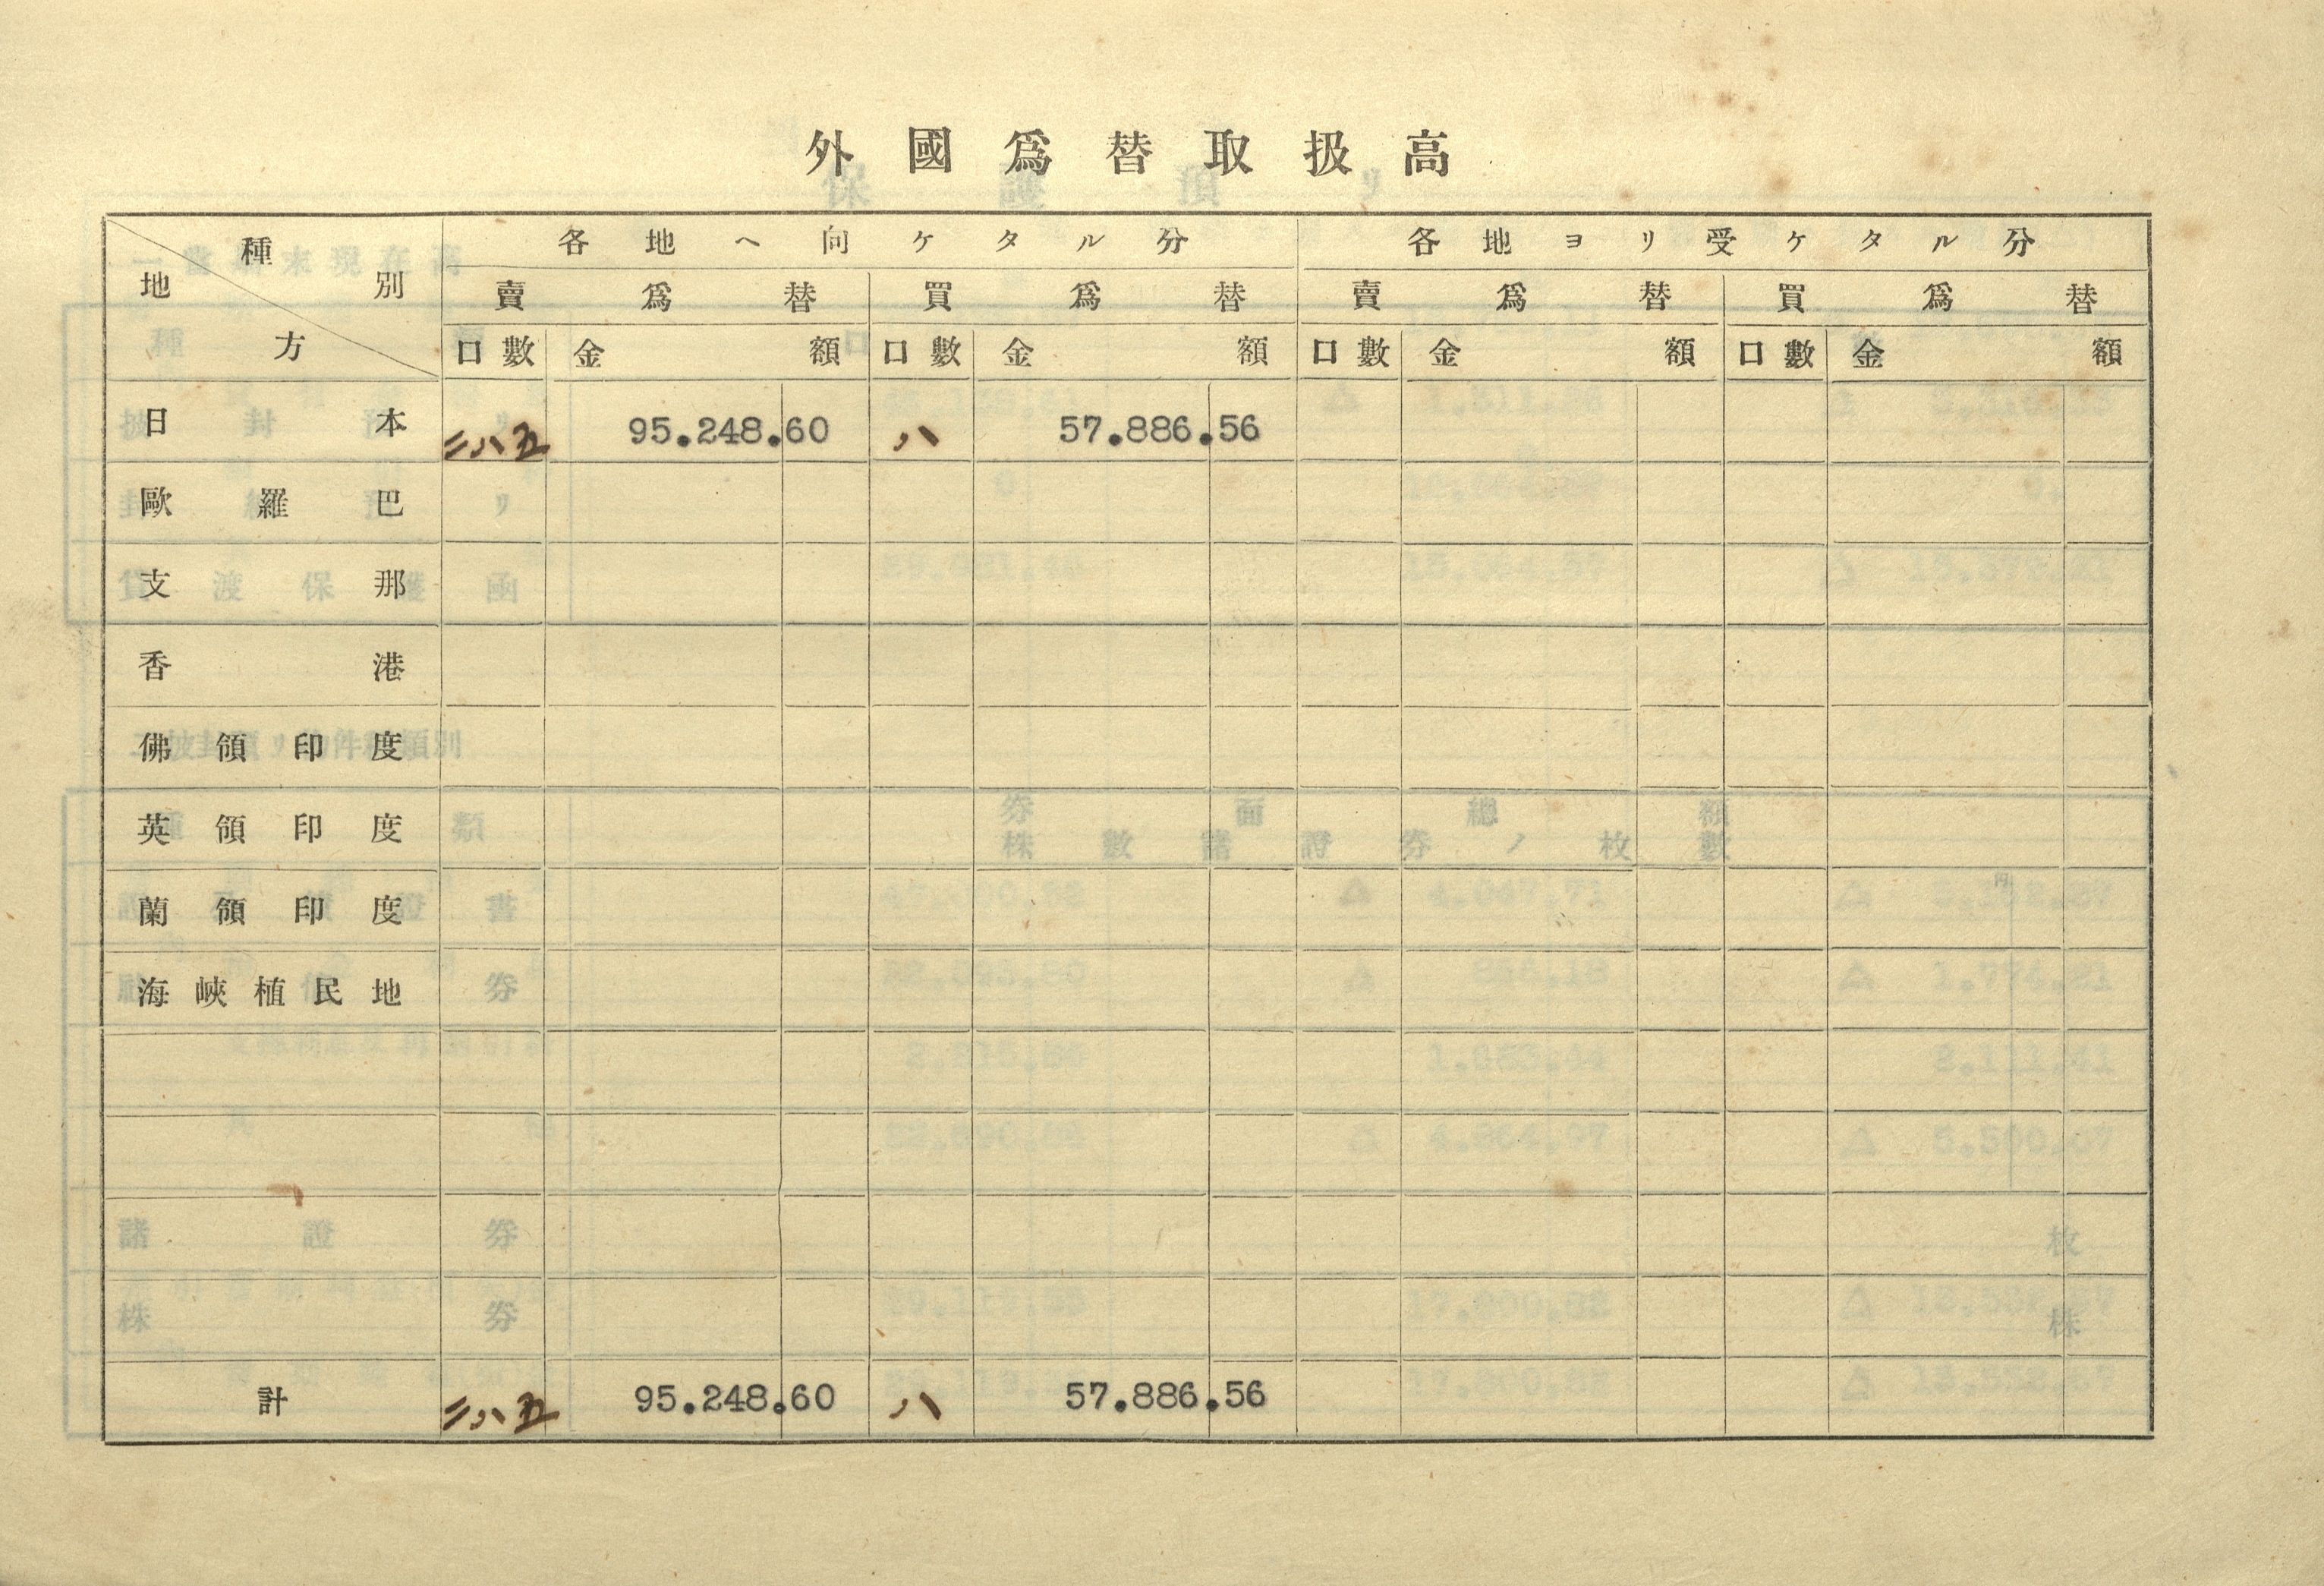 外國爲替取扱高
種別 地方 各地ヘ向ケタル分 各地ヨリ受ケタル分
賣爲替 買爲替 賣爲替 買爲替
口數 金額 口數 金額 口數 金額 口數 金額
日本 二八五 95.248.60 八 57.886.56
歐羅巴
支那
香港
佛領印度
英領印度
蘭領印度
海峽植民地
計 二八五 95.248.60 八 57.886.56